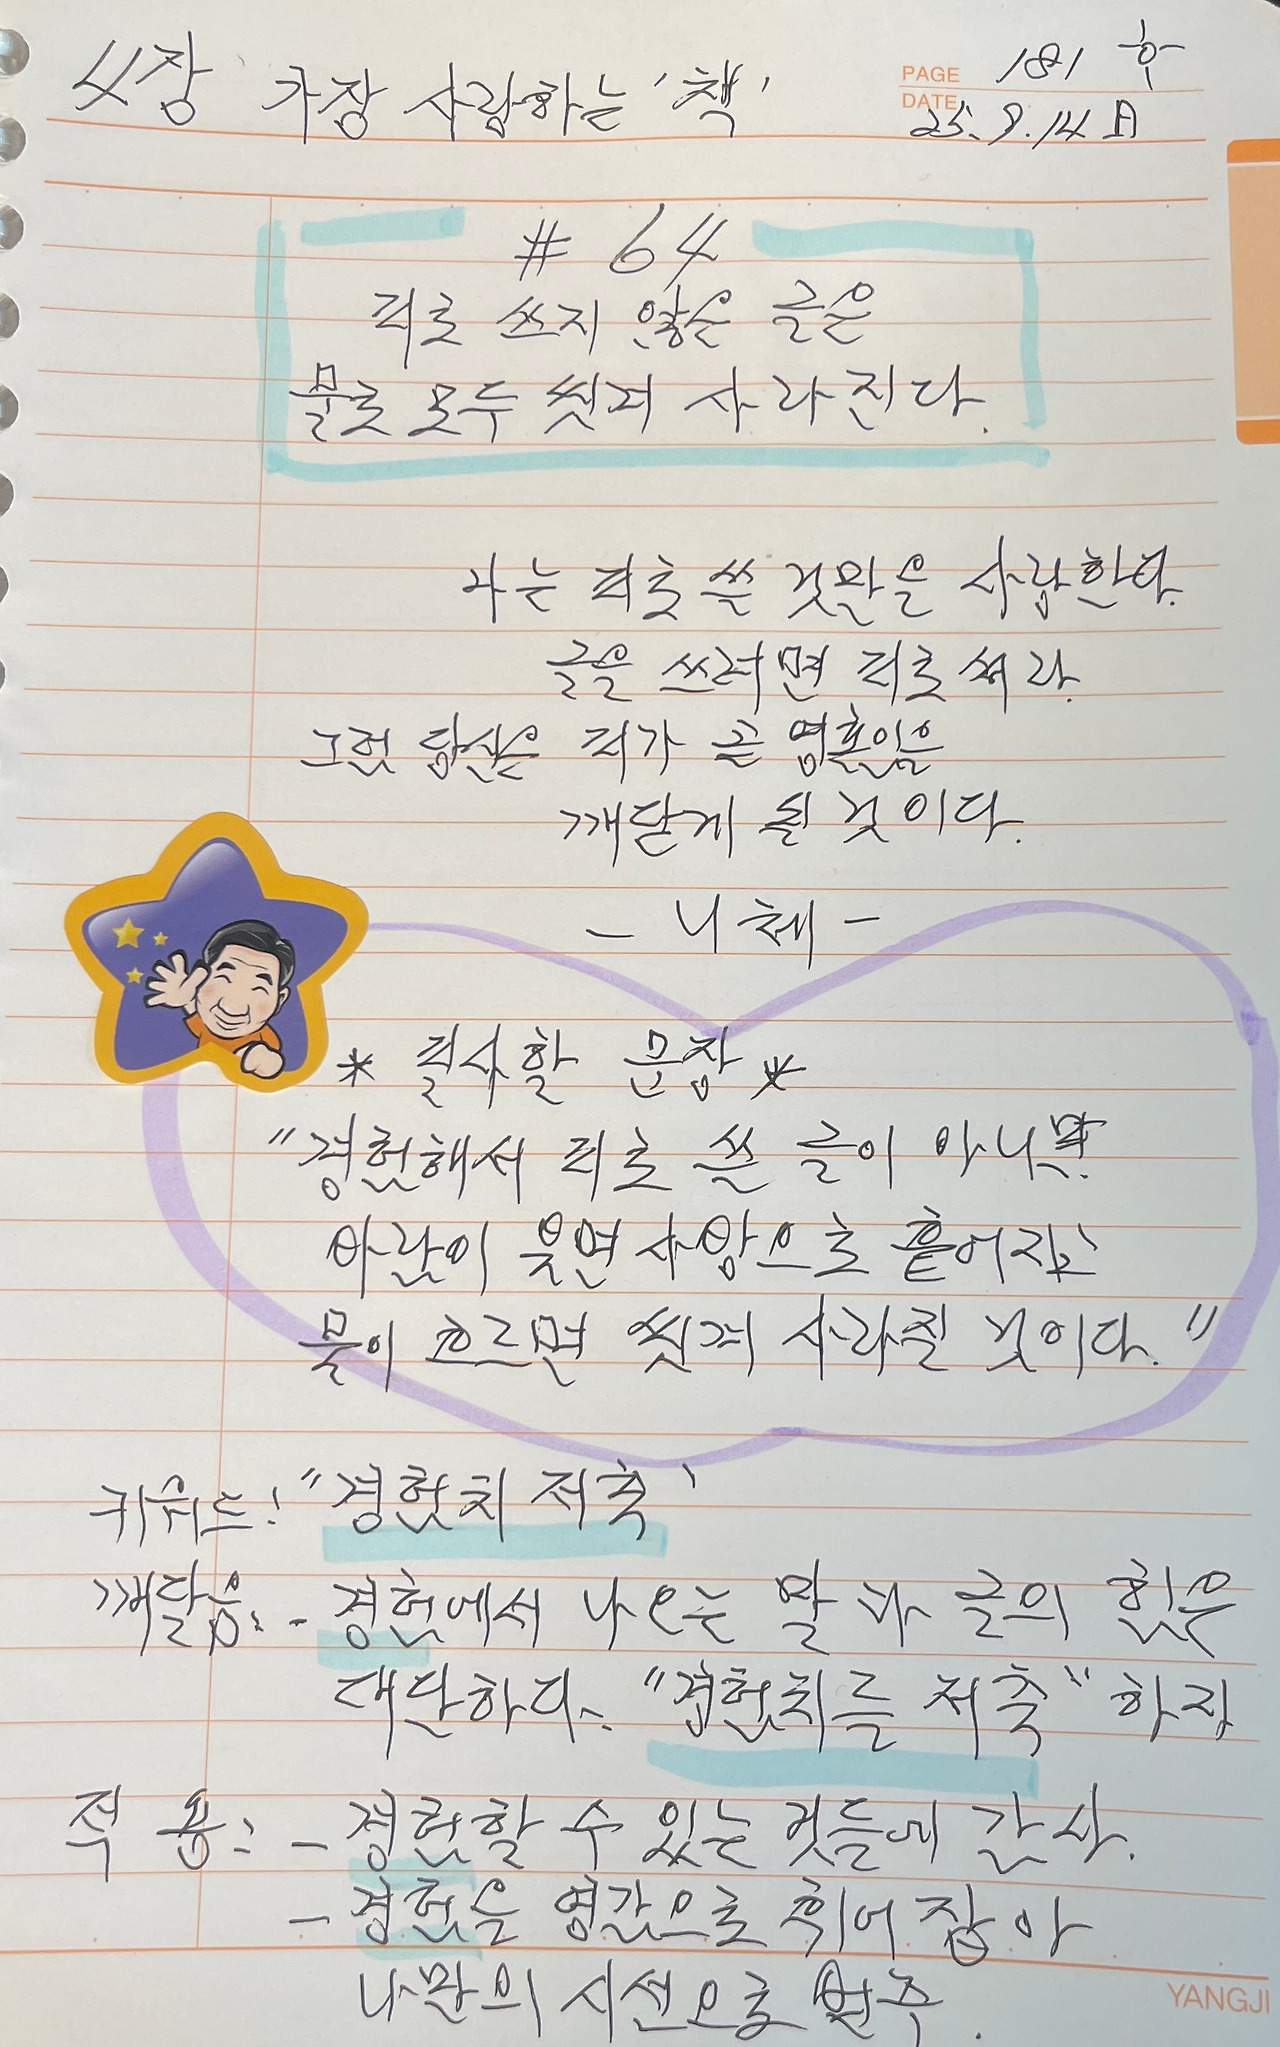 4장 가장 사랑하는 '책'
PAGE 181 후
DATE 25. 9. 14 日
# 64
피로 쓰지 않은 글은
물로 모두 씻겨 사라진다.
나는 피로 쓴 것만을 사랑한다.
글을 쓰려면 피로 써라.
그럼 당신은 피가 곧 영혼임을
깨닫게 될 것이다.
- 니체 -
* 필사할 문장 *
"경험해서 피로 쓴 글이 아니면
바람이 불면 사방으로 흩어지고
물이 흐르면 씻겨 사라질 것이다."
키워드! "경험치 저축"
깨달음: - 경험에서 나오는 말과 글의 힘은
대단하다. "경험치를 저축" 하자
적 용: - 경험할 수 있는 것들에 감사.
- 경험을 영감으로 휘어잡아
나만의 시선으로 멈추.
YANGJI